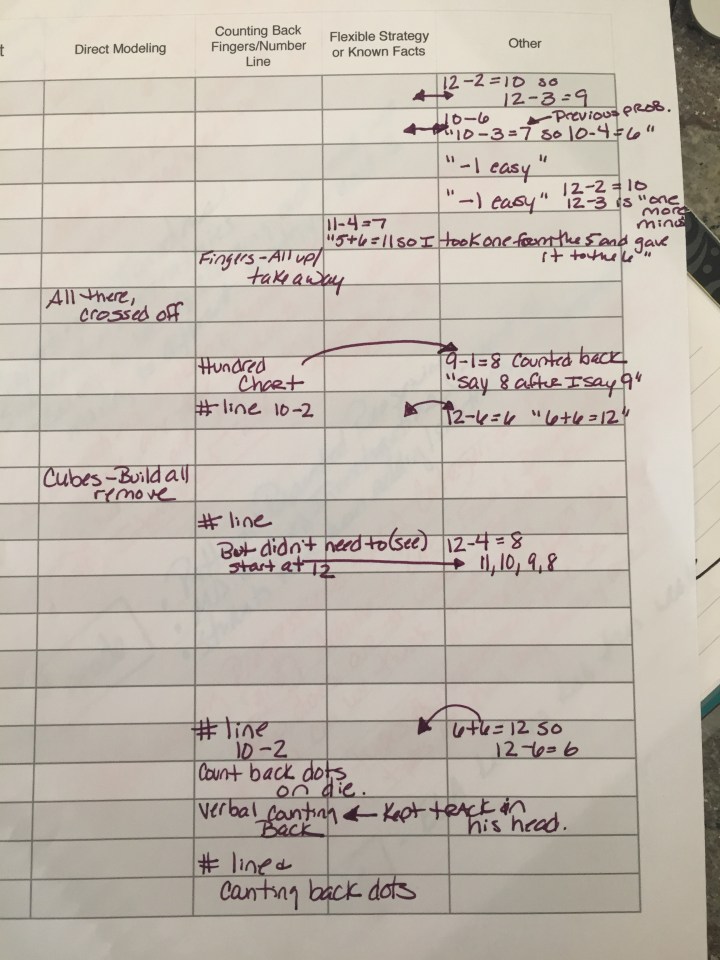 t
Direct Modeling
Counting Back
Fingers/Number
Line
Flexible Strategy
or Known Facts
Other
12-2=10 so
12-3=9
10-6
Previous PROB.
"10-3=7 so 10-4=6"
"-1 easy"
"-1 easy" 12-2=10
12-3 is "one
more
minus
11-4=7
"5+6=11 so I took one from the 5 and gave
it to the 6"
Fingers-All up/
take away
All there,
crossed off
Hundred
Chart
9-1=8 Counted back
"say 8 after I say 9"
# line 10-2
12-6=6 "6+6=12"
Cubes-Build all
remove
# line
But didn't need to (see)
start at 12
12-4=8
11,10,9,8
# line
10-2
6+6=12 so
12-6=6
Count back dots
on die.
Verbal Counting
Back
Kept track in
his head.
# line &
Counting back dots